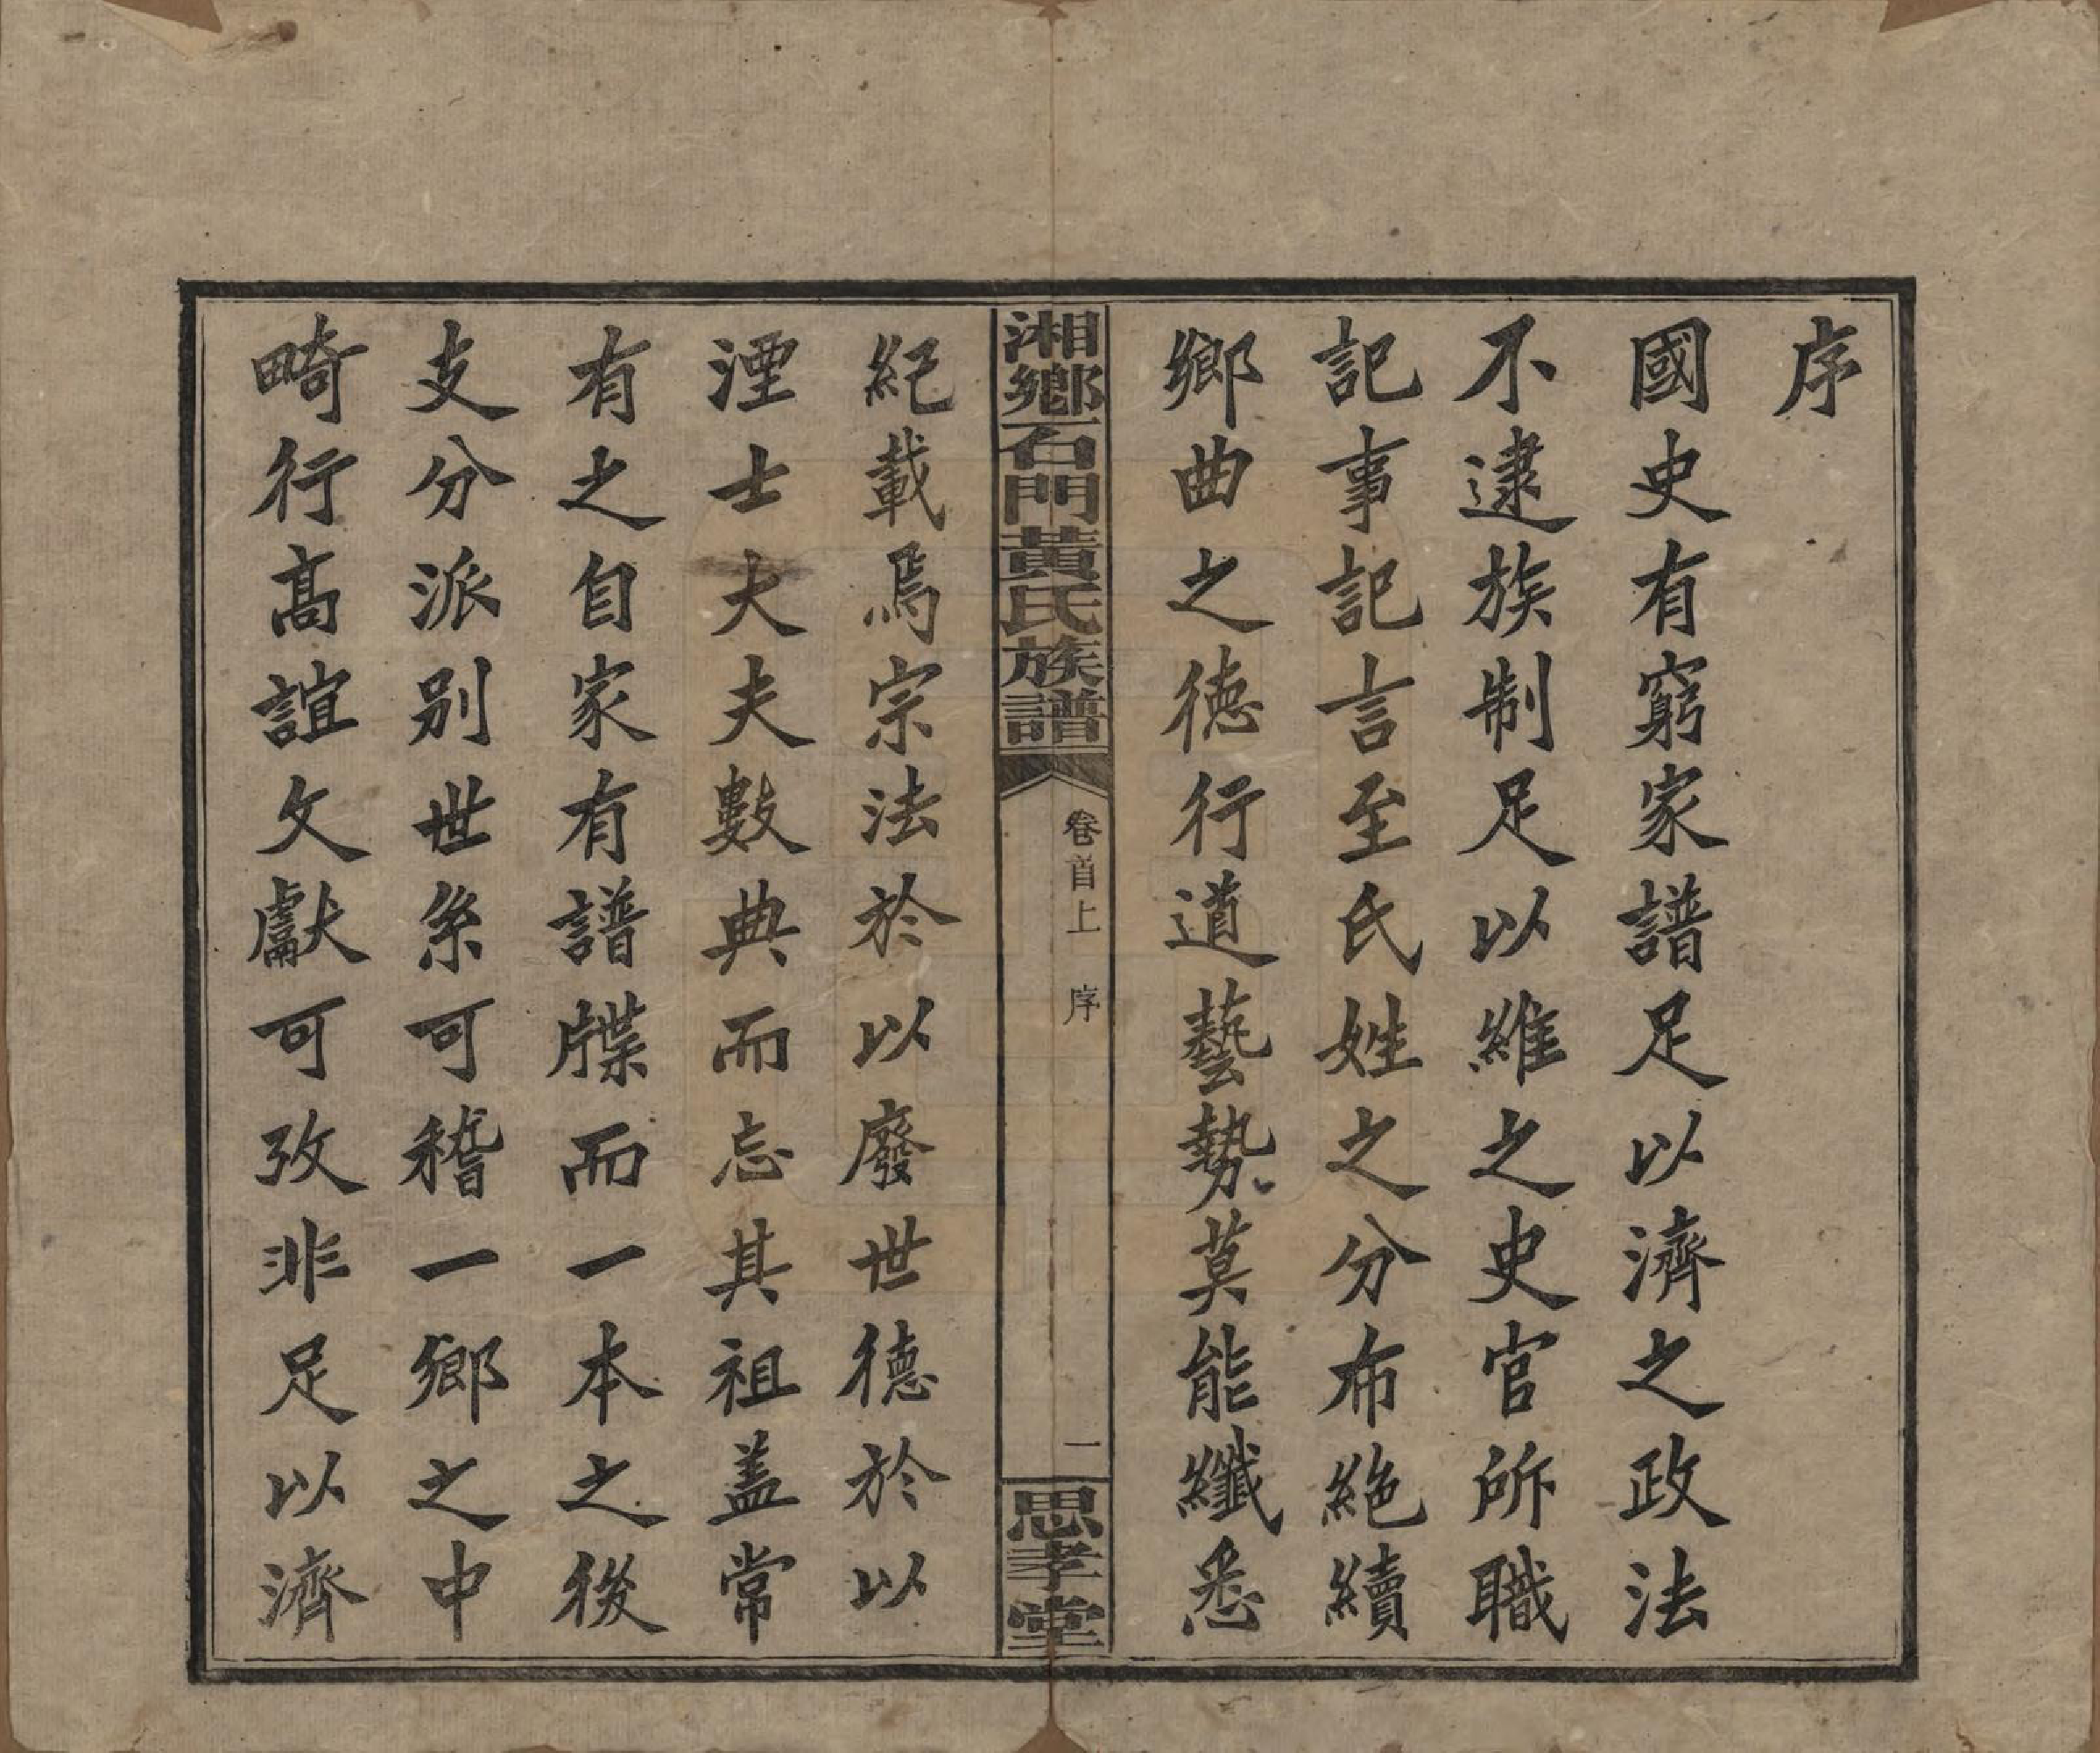 序
國史有窮家譜足以濟之政法
不逮族制足以維之史官所職
記事記言至氏姓之分布絶續
鄉曲之德行道藝勢莫能纖悉
湘鄉石門黃氏族譜
卷首上 序
一
思孝堂
紀載焉宗法於以廢世德於以
湮士大夫數典而忘其祖盖常
有之自家有譜牒而一本之後
支分派別世系可稽一鄉之中
畸行高誼文獻可攷非足以濟